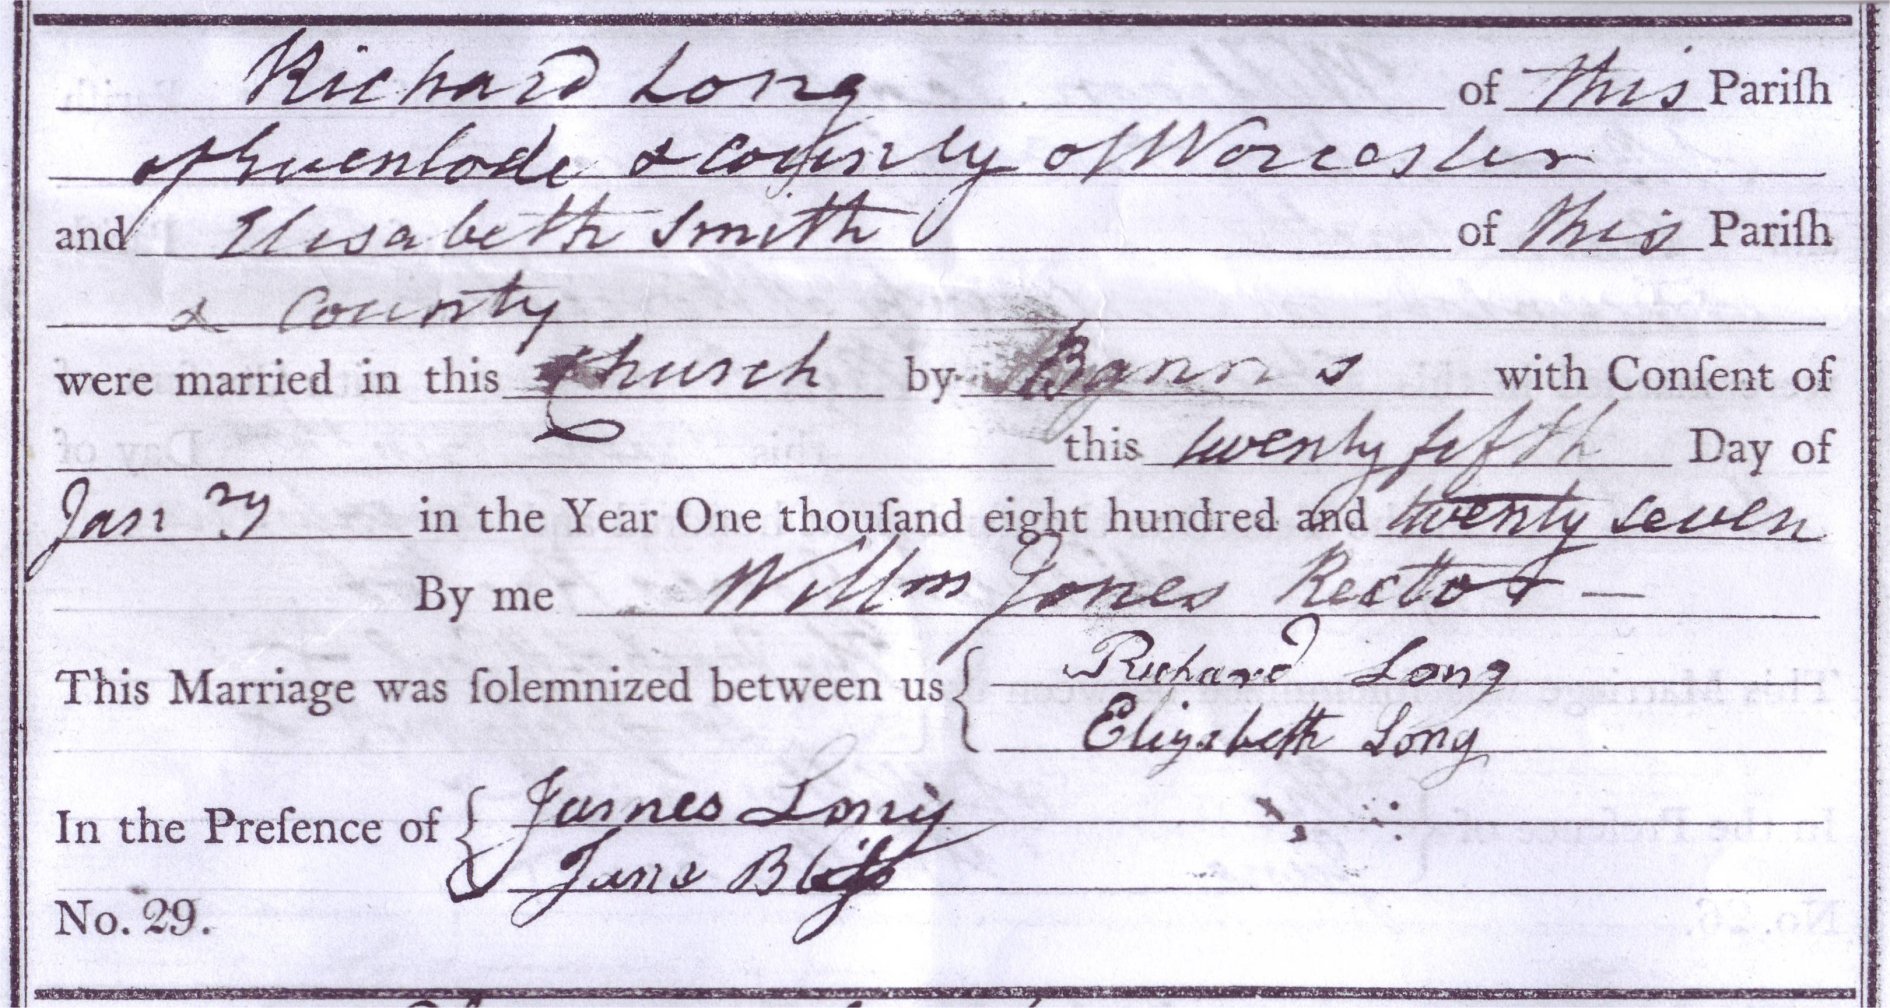 Richard Long of this Pariſh
of Evenlode & county of Worcester
and Elisabeth Smith of this Pariſh
& County
were married in this Church by Banns with Conſent of
this twenty fifth Day of
Jan ry in the Year One thouſand eight hundred and twenty seven
By me Willm Jones Rector —
This Marriage was ſolemnized between us { Richard Long
Elizabeth Long
In the Preſence of { James Long
Jane Bliſs
No. 29.